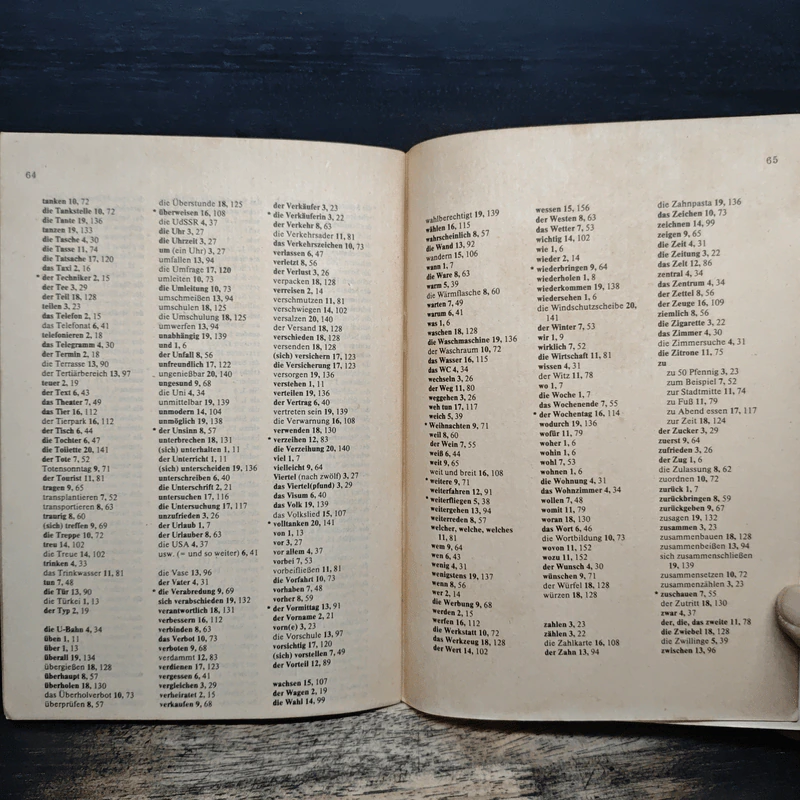 64
tanken 10, 72
die Tankstelle 10, 72
die Tante 19, 136
tanzen 19, 133
die Tasche 4, 30
die Tasse 11, 74
die Tatsache 17, 120
das Taxi 2, 16
* der Techniker 2, 15
der Tee 3, 29
der Teil 18, 128
teilen 3, 23
das Telefon 2, 15
das Telefonat 6, 41
telefonieren 2, 18
das Telegramm 4, 30
der Termin 2, 18
die Terrasse 13, 90
der Tertiärbereich 13, 97
teuer 2, 19
der Text 6, 43
das Theater 7, 49
das Tier 16, 112
der Tierpark 16, 112
der Tisch 6, 44
die Tochter 6, 47
die Toilette 20, 141
der Tote 7, 52
Totensonntag 9, 71
der Tourist 11, 81
tragen 9, 65
transplantieren 7, 52
transportieren 8, 63
traurig 8, 60
(sich) treffen 9, 69
die Treppe 10, 72
treu 14, 102
die Treue 14, 102
trinken 4, 33
das Trinkwasser 11, 81
tun 7, 48
die Tür 13, 90
die Türkei 1, 13
der Typ 2, 19
die U-Bahn 4, 34
üben 1, 11
über 1, 13
überall 19, 134
übergießen 18, 128
überhaupt 8, 57
überholen 18, 130
das Überholverbot 10, 73
überprüfen 8, 57
die Überstunde 18, 125
* überweisen 16, 108
die UdSSR 4, 37
die Uhr 3, 27
die Uhrzeit 3, 27
um (ein Uhr) 3, 27
umfallen 13, 94
die Umfrage 17, 120
umleiten 10, 73
die Umleitung 10, 73
umschmeißen 13, 94
umschulen 18, 125
die Umschulung 18, 125
umwerfen 13, 94
unabhängig 19, 139
und 1, 6
der Unfall 8, 56
unfreundlich 17, 122
ungenießbar 20, 140
ungesund 9, 68
die Uni 4, 34
unmittelbar 19, 139
unmodern 14, 104
unmöglich 19, 138
* der Unsinn 8, 57
unterbrechen 18, 131
(sich) unterhalten 1, 11
der Unterricht 1, 11
(sich) unterscheiden 19, 136
unterschreiben 6, 40
die Unterschrift 2, 21
untersuchen 17, 116
die Untersuchung 17, 117
unzufrieden 3, 26
der Urlaub 1, 7
der Urlauber 8, 63
die USA 4, 37
usw. (= und so weiter) 6, 41
die Vase 13, 96
der Vater 4, 31
* die Verabredung 9, 69
sich verabschieden 19, 132
verantwortlich 18, 131
verbessern 16, 112
verbinden 8, 63
das Verbot 10, 73
verboten 9, 68
verdammt 12, 83
verdienen 17, 123
vergessen 6, 41
vergleichen 3, 29
verheiratet 2, 15
verkaufen 9, 68
der Verkäufer 3, 23
* die Verkäuferin 3, 22
der Verkehr 8, 63
die Verkehrsader 11, 81
das Verkehrszeichen 10, 73
verlassen 6, 47
verletzt 8, 56
der Verlust 3, 26
verpacken 18, 128
verreisen 2, 14
verschmutzen 11, 81
verschwiegen 14, 102
versalzen 20, 140
der Versand 18, 128
verschieden 18, 128
versenden 18, 128
(sich) versichern 17, 123
die Versicherung 17, 123
versorgen 19, 136
verstehen 1, 11
verteilen 19, 136
der Vertrag 6, 40
vertreten sein 19, 139
die Verwarnung 16, 108
verwenden 18, 130
* verzeihen 12, 83
die Verzeihung 20, 140
viel 1, 7
vielleicht 9, 64
Viertel (nach zwölf) 3, 27
das Viertel(pfund) 3, 29
das Visum 6, 40
das Volk 19, 139
das Volkslied 15, 107
* volltanken 20, 141
von 1, 13
vor 3, 27
vor allem 4, 37
vorbei 7, 53
vorbeifließen 11, 81
die Vorfahrt 10, 73
vorhaben 7, 48
vorher 8, 59
* der Vormittag 13, 91
der Vorname 2, 21
vorn(e) 3, 23
die Vorschule 13, 97
vorsichtig 17, 120
(sich) vorstellen 7, 49
der Vorteil 12, 89
wachsen 15, 107
der Wagen 2, 19
die Wahl 14, 99
65
wahlberechtigt 19, 139
wählen 16, 115
wahrscheinlich 8, 57
die Wand 13, 92
wandern 15, 106
wann 1, 7
die Ware 8, 63
warm 5, 39
die Wärmflasche 8, 60
warten 7, 49
warum 6, 41
was 1, 6
waschen 18, 128
die Waschmaschine 19, 136
der Waschraum 10, 72
das Wasser 16, 115
das WC 4, 34
wechseln 3, 26
der Weg 11, 80
weggehen 3, 26
weh tun 17, 117
weich 5, 39
* Weihnachten 9, 71
weil 8, 60
der Wein 7, 55
weiß 6, 44
weit 9, 65
weit und breit 16, 108
* weitere 9, 71
weiterfahren 12, 91
* weiterfliegen 5, 38
weitergehen 13, 94
weiterreden 8, 57
welcher, welche, welches
11, 81
wem 9, 64
wen 6, 43
wenig 4, 31
wenigstens 19, 137
wenn 8, 56
wer 2, 14
die Werbung 9, 68
werden 2, 15
werfen 16, 112
die Werkstatt 10, 72
das Werkzeug 18, 128
der Wert 14, 102
wessen 15, 156
der Westen 8, 63
das Wetter 7, 53
wichtig 14, 102
wie 1, 6
wieder 2, 14
* wiederbringen 9, 64
wiederholen 1, 8
wiederkommen 19, 138
wiedersehen 1, 6
die Windschutzscheibe 20,
141
der Winter 7, 53
wir 1, 9
wirklich 7, 52
die Wirtschaft 11, 81
wissen 4, 31
der Witz 11, 78
wo 1, 7
die Woche 1, 7
das Wochenende 7, 55
* der Wochentag 16, 114
wodurch 19, 136
wofür 11, 79
woher 1, 6
wohin 1, 6
wohl 7, 53
wohnen 1, 6
die Wohnung 4, 31
das Wohnzimmer 4, 34
wollen 7, 48
womit 11, 79
woran 18, 130
das Wort 6, 46
die Wortbildung 10, 73
wovon 11, 152
wozu 11, 152
der Wunsch 4, 30
wünschen 9, 71
der Würfel 18, 128
würzen 18, 128
zahlen 3, 23
zählen 3, 22
die Zahlkarte 16, 108
der Zahn 13, 94
die Zahnpasta 19, 136
das Zeichen 10, 73
zeichnen 14, 99
zeigen 9, 65
die Zeit 4, 31
die Zeitung 3, 22
das Zelt 12, 86
zentral 4, 34
das Zentrum 4, 34
der Zettel 8, 56
der Zeuge 16, 109
ziemlich 8, 56
die Zigarette 3, 22
das Zimmer 4, 30
die Zimmersuche 4, 31
die Zitrone 11, 75
zu
zu 50 Pfennig 3, 23
zum Beispiel 7, 52
zur Stadtmitte 11, 74
zu Fuß 11, 79
zu Abend essen 17, 117
zur Zeit 18, 124
der Zucker 3, 29
zuerst 9, 64
zufrieden 3, 26
der Zug 1, 6
die Zulassung 8, 62
zuordnen 10, 72
zurück 1, 7
zurückbringen 8, 59
zurückgeben 9, 67
zusagen 19, 132
zusammen 3, 23
zusammenbauen 18, 128
zusammenbeißen 13, 94
sich zusammenschließen
19, 139
zusammensetzen 10, 72
zusammenzählen 3, 23
* zuschauen 7, 55
der Zutritt 18, 130
zwar 4, 37
der, die, das zweite 11, 78
die Zwiebel 18, 128
die Zwillinge 5, 39
zwischen 13, 96